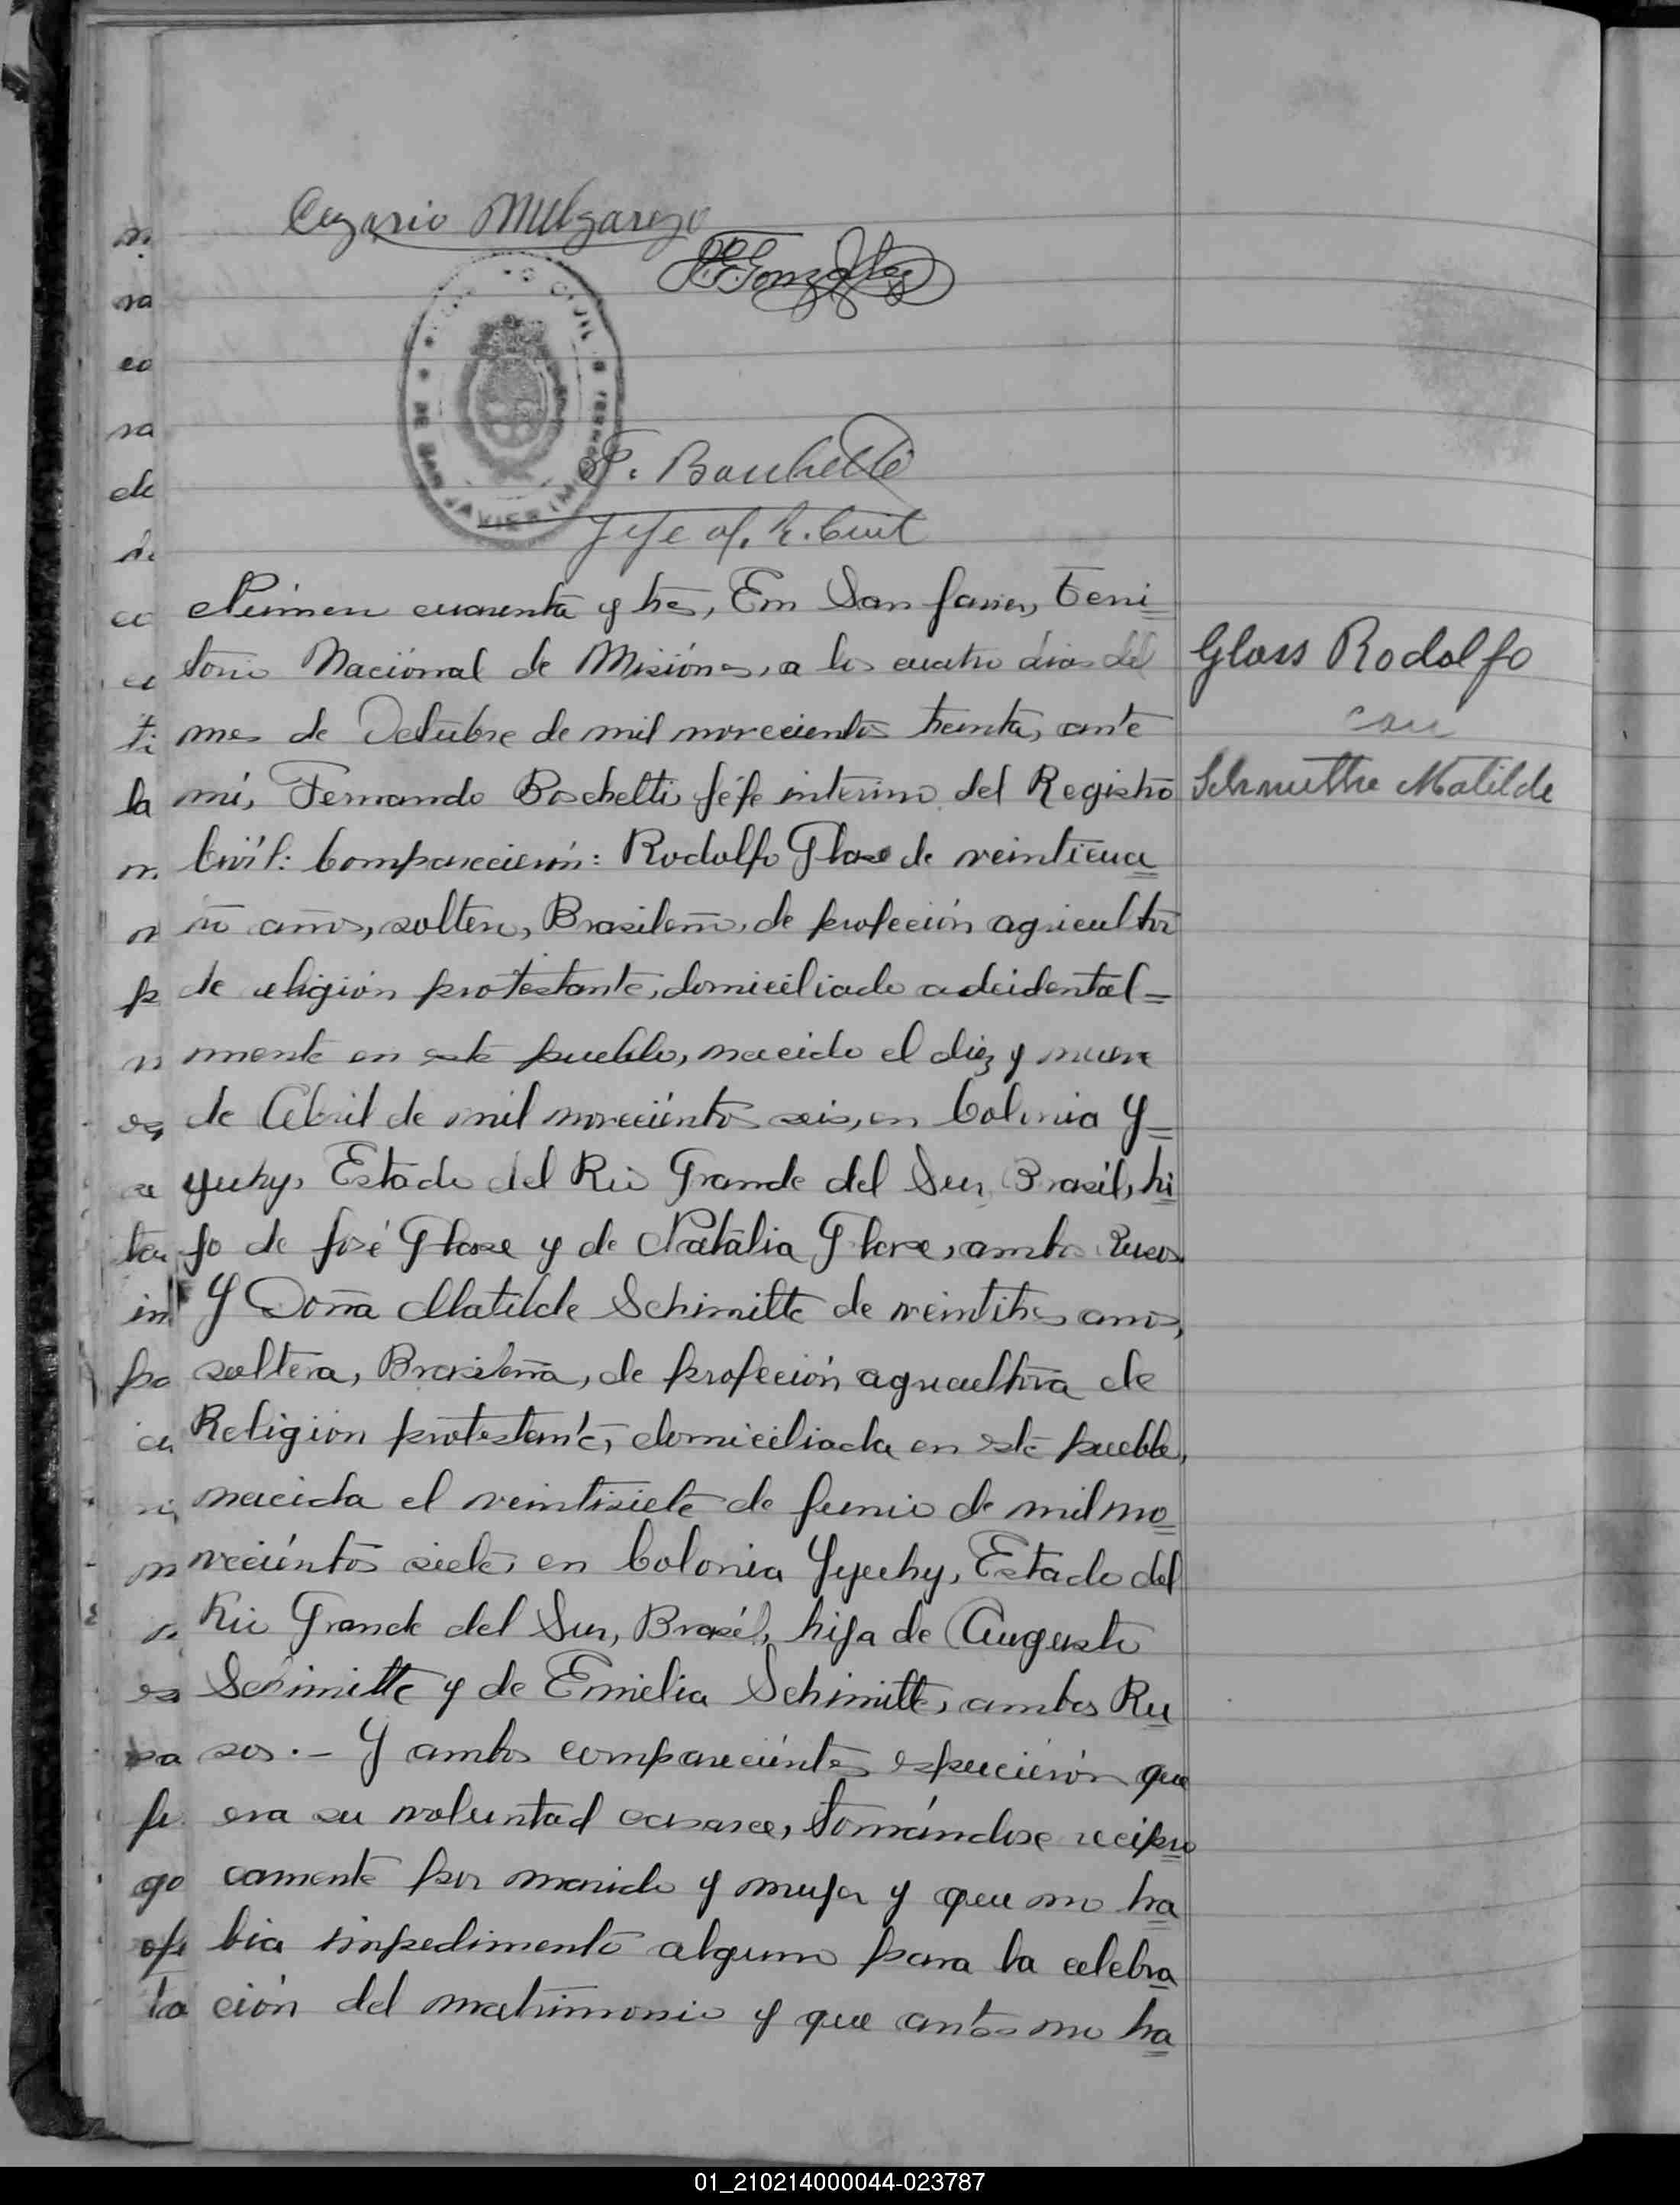 Cezario Melgarejo
González
F. Boschetti
Jefe of. R. Civil
Número cuarenta y tres, En San Javier, Terri=
torio Nacional de Misiónes, a los cuatro dias del
mes de Octubre de mil novecientos treinta, ante
mi, Fernando Boschetti, Jéfe interino del Registro
Civil: Comparecierón: Rodolfo Glase de veinticua=
tro años, soltero, Brasileño, de profeción agricultor
de religión protestante, domiciliado acidental=
mente en este pueblo, nacido el diez y nueve
de Abril de mil noveciéntos seis, en Colonia Y=
yuhy, Estado del Rio Grande del Sur, Brasil, hi=
jo de José Glase y de Natalia Glase, ambos Rusos.
Y Doña Matilde Schimitte de veintitres años,
soltera, Brasileña, de profeción agricultora de
Religión protestante, domiciliada en este pueblo,
nacida el veintisiete de Junio de mil no=
veciéntos siete, en Colonia Yyuhy, Estado del
Rio Grande del Sur, Brasil, hija de Augusto
Schimitte y de Emilia Schimitte, ambos Ru=
sos.- Y ambos compareciéntes espucierón que
era su voluntad casarce, tomándose recipro=
camente por marido y mujer y que no ha=
bia impedimento alguno para la celebra=
ción del matrimonio y que antes no ha=
Glass Rodolfo
con
Schmitthe Matilde
01_210214000044-023787